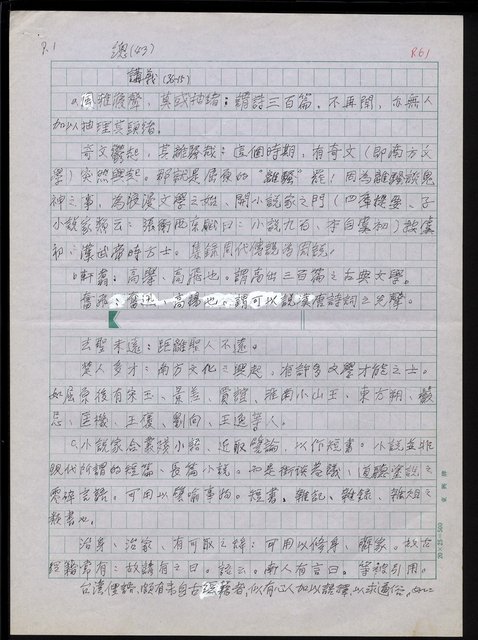 P.1 總(43) P.61
講義(36-15)
a.風雅寢聲,莫或抽緒:謂詩三百篇,不再聞,亦無人
加以抽理其頭緒。
奇文鬱起,其離騷哉:這個時期,有奇文(即南方文
學)突然興起。那就是屈原的“離騷”罷!因為離騷談鬼
神之事,為浪漫文學之始,開小說家之門(四庫提要、子
小說家類云:張衡西京賦曰:小說九百,本自虞初)按虞
初:漢武帝時方士。集錄周代傳說為周說。
b軒翥:高舉、高飛也。謂高出三百篇之古典文學。
奮飛:奮迅、高揚也。謂可以誤漢唐詩詞之先聲。
去聖未遠:距離聖人不遠。
楚人多才:南方文化之興起,有許多文學才能之士。
如屈原後有宋玉、景差、賈誼、淮南小山王、東方朔、嚴
忌、匡機、王褒、劉向、王逸等人。
c.小說家合叢殘小語,近取譬論,以作短書。小說並非
現代所謂的短篇、長篇小說。而是街談巷議、道聽塗說之
零碎言語。可用以譬喻事物。短書,雜記、雜錄、雜俎之
類書也。
治身、治家,有可觀之辭:可用以修身、齊家。故古
經籍常有:故諺有之曰。諺云。南人有言曰。等被引用。
台灣俚語,頗有來自古經籍者,似有心人加以語譯,以求通俗。
20×25=500